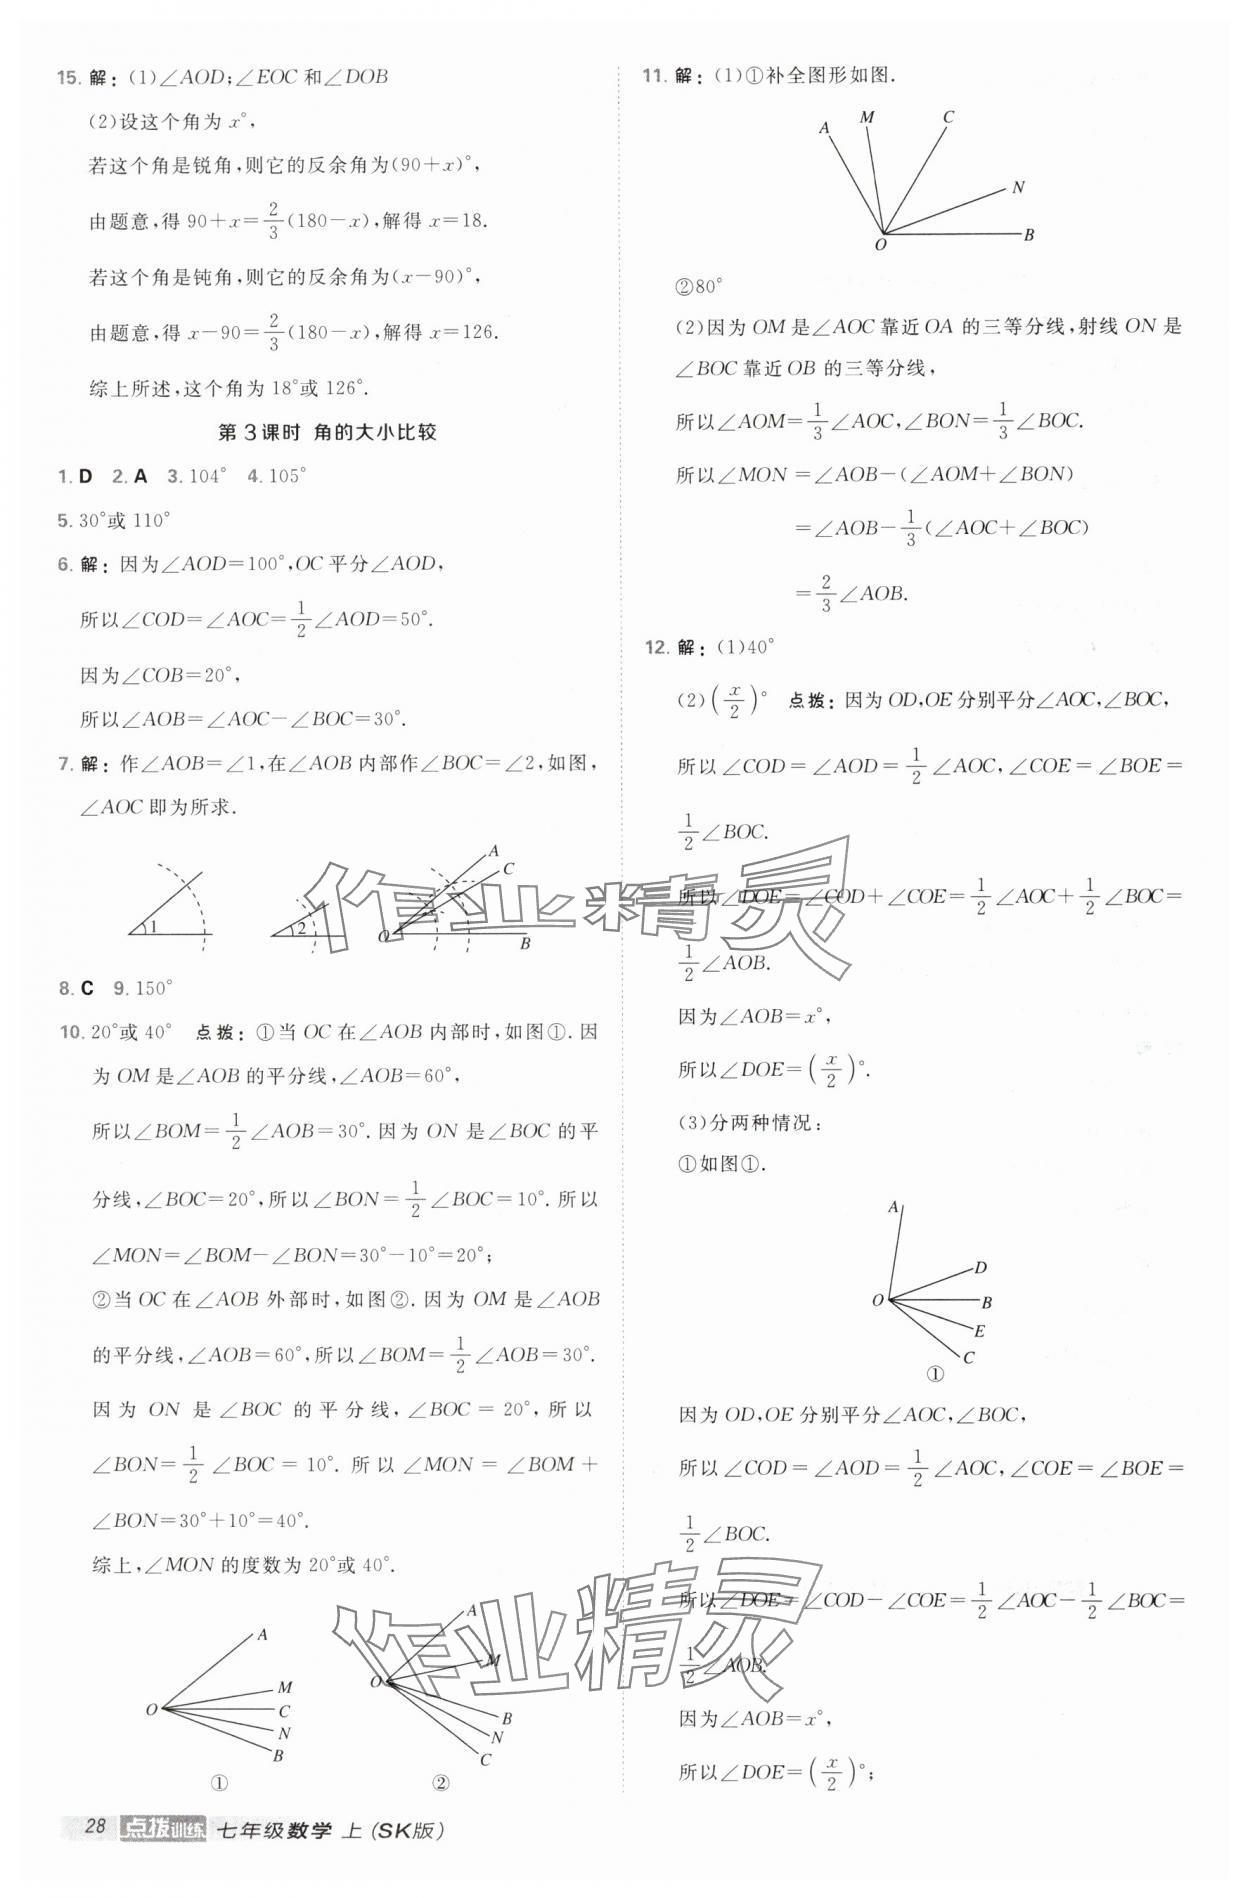 15. 解：(1)∠AOD；∠EOC 和∠DOB
(2)设这个角为 x°，
若这个角是锐角，则它的反余角为(90+x)°，
由题意，得 90+x=2/3(180-x)，解得 x=18.
若这个角是钝角，则它的反余角为(x-90)°，
由题意，得 x-90=2/3(180-x)，解得 x=126.
综上所述，这个角为 18°或 126°.
第 3 课时 角的大小比较
1. D 2. A 3. 104° 4. 105°
5. 30°或 110°
6. 解：因为∠AOD=100°，OC 平分∠AOD，
所以∠COD=∠AOC=1/2∠AOD=50°.
因为∠COB=20°，
所以∠AOB=∠AOC-∠BOC=30°.
7. 解：作∠AOB=∠1，在∠AOB 内部作∠BOC=∠2，如图，
∠AOC 即为所求.
1 2 O A C B
8. C 9. 150°
10. 20°或 40° 点拨：①当 OC 在∠AOB 内部时，如图①. 因
为 OM 是∠AOB 的平分线，∠AOB=60°，
所以∠BOM=1/2∠AOB=30°. 因为 ON 是∠BOC 的平
分线，∠BOC=20°，所以∠BON=1/2∠BOC=10°. 所以
∠MON=∠BOM-∠BON=30°-10°=20°；
②当 OC 在∠AOB 外部时，如图②. 因为 OM 是∠AOB
的平分线，∠AOB=60°，所以∠BOM=1/2∠AOB=30°.
因为 ON 是∠BOC 的平分线，∠BOC=20°，所以
∠BON=1/2∠BOC=10°. 所以∠MON=∠BOM+
∠BON=30°+10°=40°.
综上，∠MON 的度数为 20°或 40°.
O A M C N B
①
O A M B N C
②
28 点拨训练 七年级数学 上(SK版)
11. 解：(1)①补全图形如图.
A M C N O B
②80°
(2)因为 OM 是∠AOC 靠近 OA 的三等分线，射线 ON 是
∠BOC 靠近 OB 的三等分线，
所以∠AOM=1/3∠AOC，∠BON=1/3∠BOC.
所以∠MON=∠AOB-(∠AOM+∠BON)
=∠AOB-1/3(∠AOC+∠BOC)
=2/3∠AOB.
12. 解：(1)40°
(2)(x/2)° 点拨：因为 OD，OE 分别平分∠AOC，∠BOC，
所以∠COD=∠AOD=1/2∠AOC，∠COE=∠BOE=
1/2∠BOC.
所以∠DOE=∠COD+∠COE=1/2∠AOC+1/2∠BOC=
1/2∠AOB.
因为∠AOB=x°，
所以∠DOE=(x/2)°.
(3)分两种情况：
①如图①.
A D O B E C
①
因为 OD，OE 分别平分∠AOC，∠BOC，
所以∠COD=∠AOD=1/2∠AOC，∠COE=∠BOE=
1/2∠BOC.
所以∠DOE=∠COD-∠COE=1/2∠AOC-1/2∠BOC=
1/2∠AOB.
因为∠AOB=x°，
所以∠DOE=(x/2)°；
作业精灵
作业精灵